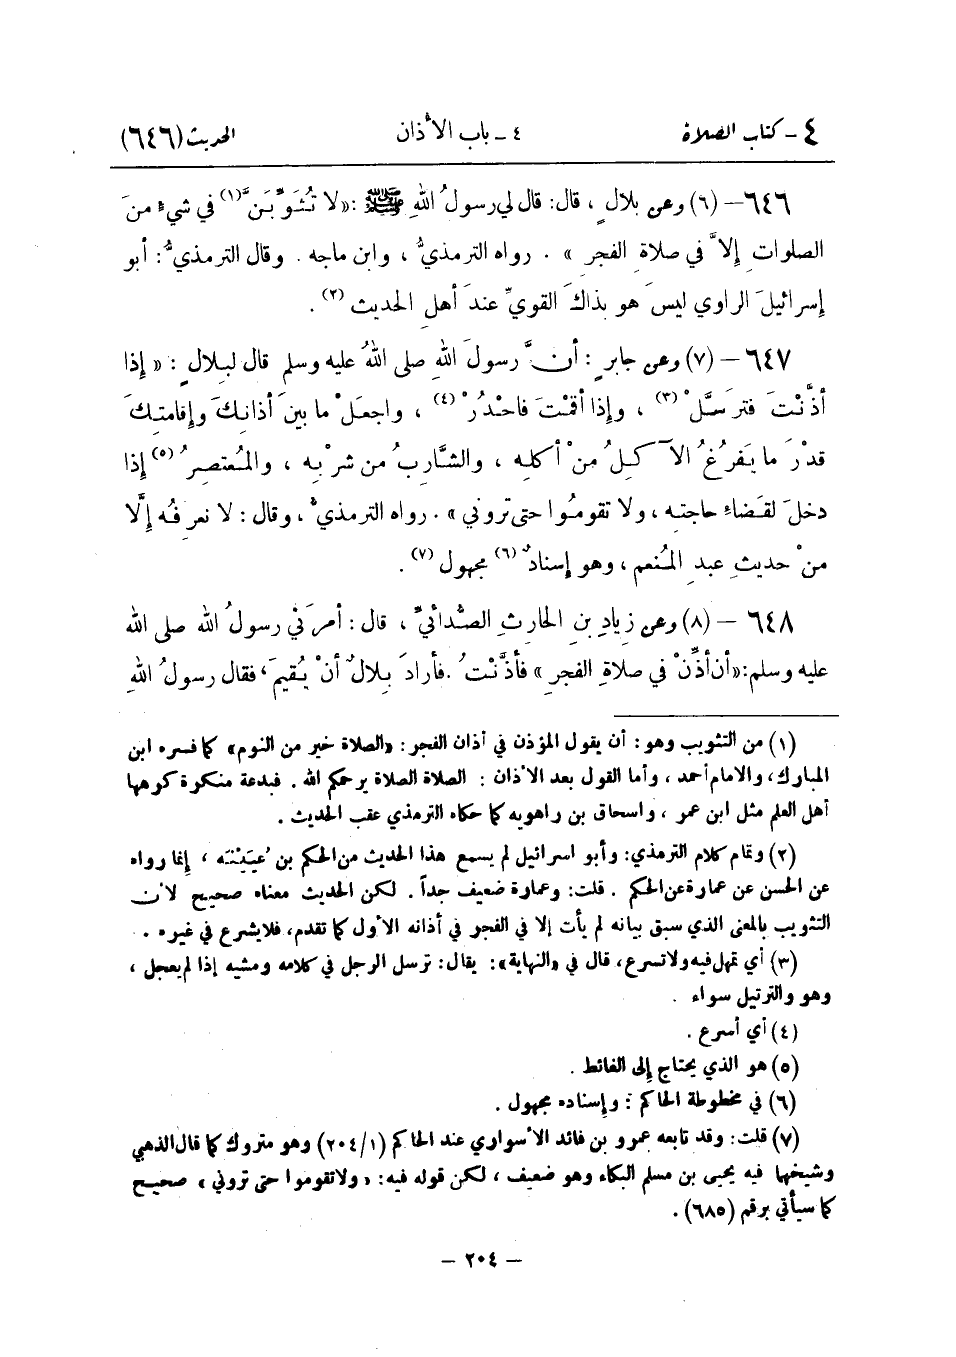 ٤ - كتاب الصلاة ٤ - باب الأذان الحديث (٦٤٦)
٦٤٦ – (٦) وعن بلالٍ ، قال: قال لي رسولُ اللهِ ﷺ :«لا تُثَوِّبَنَّ(١) في شيءٍ منَ
الصلواتِ إِلاَّ في صلاةِ الفجرِ » . رواه الترمذيُّ ، وابن ماجه . وقال الترمذيُّ: أبو
إسرائيلَ الراوي ليسَ هو بذاكَ القويِّ عندَ أهلِ الحديثِ (٢) .
٦٤٧ – (٧) وعن جابرٍ : أنَّ رسولَ اللهِ صلى اللهُ عليه وسلم قال لبلالٍ : « إذا
أذَّنْتَ فترسَّلْ (٣) ، وإذا أقمْتَ فاحْدُرْ (٤) ، واجعلْ ما بينَ أذانِكَ وإقامتِكَ
قدْرَ ما يَفرُغُ الآكِلُ مِنْ أكلِه ، والشَّارِبُ من شربِه ، والمُعتصِرُ (٥) إذا
دخلَ لقَضاءِ حاجتِه ، ولا تقومُوا حتى تروني » . رواه الترمذيُّ ، وقال : لا نعرِفُه إلَّا
منْ حديثِ عبدِ المُنعم ، وهو إسنادٌ (٦) مجهول (٧) .
٦٤٨ – (٨) وعن زيادِ بنِ الحارثِ الصُّدائيِّ ، قال : أمرَني رسولُ الله صلى الله
عليه وسلم:«أن أذِّنْ في صلاةِ الفجرِ » فأذَّنْتُ .فأرادَ بلالٌ أنْ يُقيمَ، فقال رسولُ اللهِ
(١) من التثويب وهو: أن يقول المؤذن في أذان الفجر: «الصلاة خير من النوم» كما فسره ابن
المبارك، والامام أحمد ، وأما القول بعد الأذان : الصلاة الصلاة يرحمكم الله . فبدعة منكرة كرهها
أهل العلم مثل ابن عمر ، واسحاق بن راهويه كما حكاه الترمذي عقب الحديث .
(٢) وتمام كلام الترمذي: وأبو اسرائيل لم يسمع هذا الحديث من الحكم بن عُيَيْنَة ، إنما رواه
عن الحسن عن عمارة عن الحكم . قلت: وعمارة ضعيف جداً . لكن الحديث معناه صحيح لأن
التثويب بالمعنى الذي سبق بيانه لم يأت إلا في الفجر في أذانه الأول كما تقدم، فلا يشرع في غيره .
(٣) أي تمهل فيه ولا تسرع، قال في «النهاية»: يقال: ترسل الرجل في كلامه ومشيه إذا لم يعجل ،
وهو والترتيل سواء .
(٤) أي أسرع .
(٥) هو الذي يحتاج إلى الغائط .
(٦) في مخطوطة الحاكم : وإسناده مجهول .
(٧) قلت: وقد تابعه عمرو بن فائد الأسواري عند الحاكم (٢٠٤/١) وهو متروك كما قال الذهبي
وشيخها فيه يحيى بن مسلم البكاء وهو ضعيف ، لكن قوله فيه: « ولا تقوموا حتى تروني » صحيح
كما سيأتي برقم (٦٨٥) .
– ٢٠٤ –